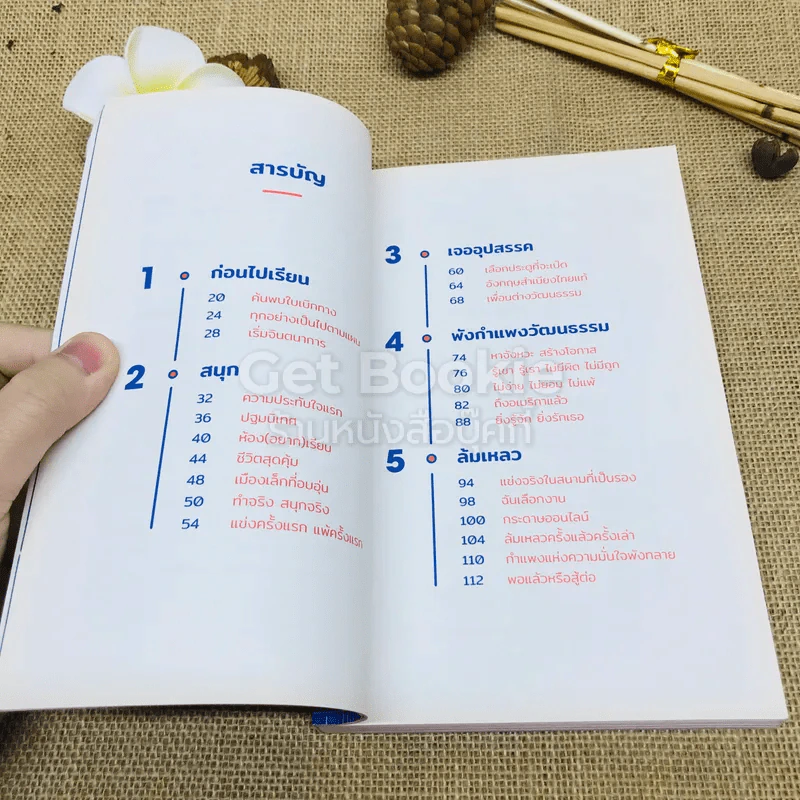 สารบัญ
1 ก่อนไปเรียน
20 ค้นพบใบเบิกทาง
24 ทุกอย่างเป็นไปตามแผน
28 เริ่มจินตนาการ
2 สนุก
32 ความประทับใจแรก
36 ปฐมนิเทศ
40 ห้อง(อยาก)เรียน
44 ชีวิตสุดคุ้ม
48 เมืองเล็กที่อบอุ่น
50 ทำจริง สนุกจริง
54 แข่งครั้งแรก แพ้ครั้งแรก
3 เจออุปสรรค
60 เลือกประตูที่จะเปิด
64 อังกฤษสำเนียงไทยแท้
68 เพื่อนต่างวัฒนธรรม
4 พังกำแพงวัฒนธรรม
74 หาจังหวะ สร้างโอกาส
76 รู้เขา รู้เรา ไม่มีผิด ไม่มีถูก
80 ไม่อ่าน ไม่ยอม ไม่แพ้
82 ถึงอเมริกาแล้ว
88 ยิ่งรู้จัก ยิ่งรักเธอ
5 ล้มเหลว
94 แข่งจริงในสนามที่เป็นรอง
98 ฉันเลือกงาน
100 กระดาษออนไลน์
104 ล้มเหลวครั้งแล้วครั้งเล่า
110 กำแพงแห่งความมั่นใจพังทลาย
112 พอแล้วหรือสู้ต่อ
Get Bookie
ร้านหนังสือบุ๊คกี้